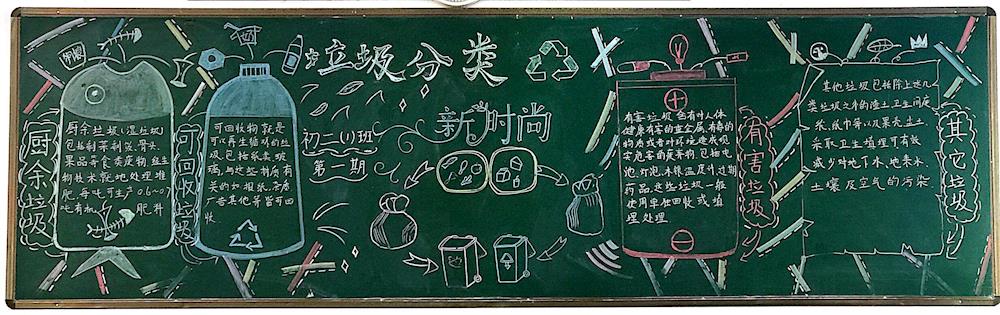 垃圾分类
新时尚
初二(1)班
第一期
厨余垃圾
厨余垃圾(湿垃圾)
包括剩菜剩饭、骨头、
果品等食类废物,经生
物技术就地处理堆
肥,每吨可生产0.6~0.7
吨有机 肥料
可回收垃圾
可回收物就是
可以再生循环的垃
圾,包括纸类、玻
璃,与这些材质有
关的如报纸、杂志
广告其他等皆可回
收
有害垃圾
有害垃圾含有对人体
健康有害的重金属、有毒的
物质或者对环境造成现
实危害的废弃物,包括电
池、灯泡、水银温度计、过期
药品,这些垃圾一般
使用单独回收或填
埋处理
其它垃圾
其他垃圾包括除上述几
类垃圾之外的渣土、卫生间废
纸、纸巾等以及果壳、尘土,
采取卫生填埋可有效
减少对地下水、地表水、
土壤及空气的污染.